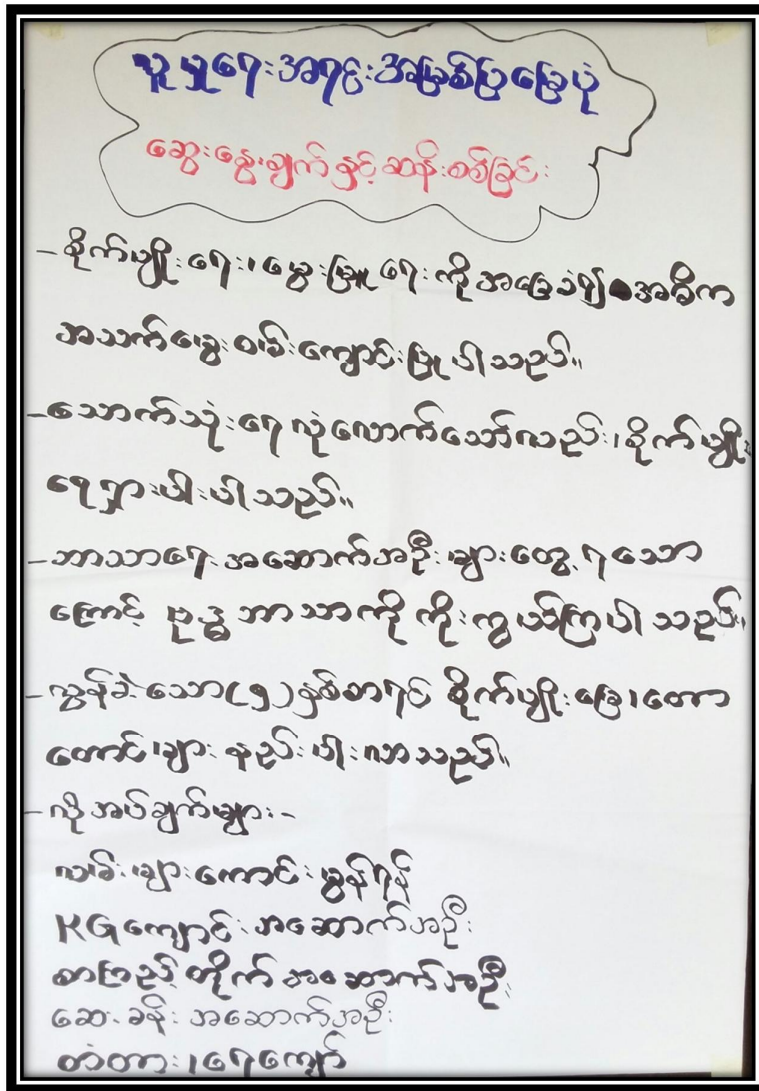 လူမှုရေးအရင်းအမြစ်ပြမြေပုံ
ဆွေးနွေးချက်နှင့်ဆန်းစစ်ခြင်း
-စိုက်ပျိုးရေး၊မွေးမြူရေးကိုအခြေခံ၍အဓိက
အသက်မွေးဝမ်းကျောင်းပြုပါသည်။
-သောက်သုံးရေလုံလောက်သော်လည်း၊စိုက်ပျိုး
ရေရှားပါးပါသည်။
-ဘာသာရေးအဆောက်အဦးများတွေ့ရသော
ကြောင့် ဗုဒ္ဓဘာသာကိုကိုးကွယ်ကြပါသည်။
-လွန်ခဲ့သော(၅)နှစ်စာရင် စိုက်ပျိုးမြေ၊တော
တောင်များနည်းပါးလာသည်။
-လိုအပ်ချက်များ-
လမ်းများကောင်းမွန်ရန်
KGကျောင်းအဆောက်အဦး
စာကြည့်တိုက်အဆောက်အဦး
ဆေးခန်းအဆောက်အဦး
တံတား၊ရေကျော်